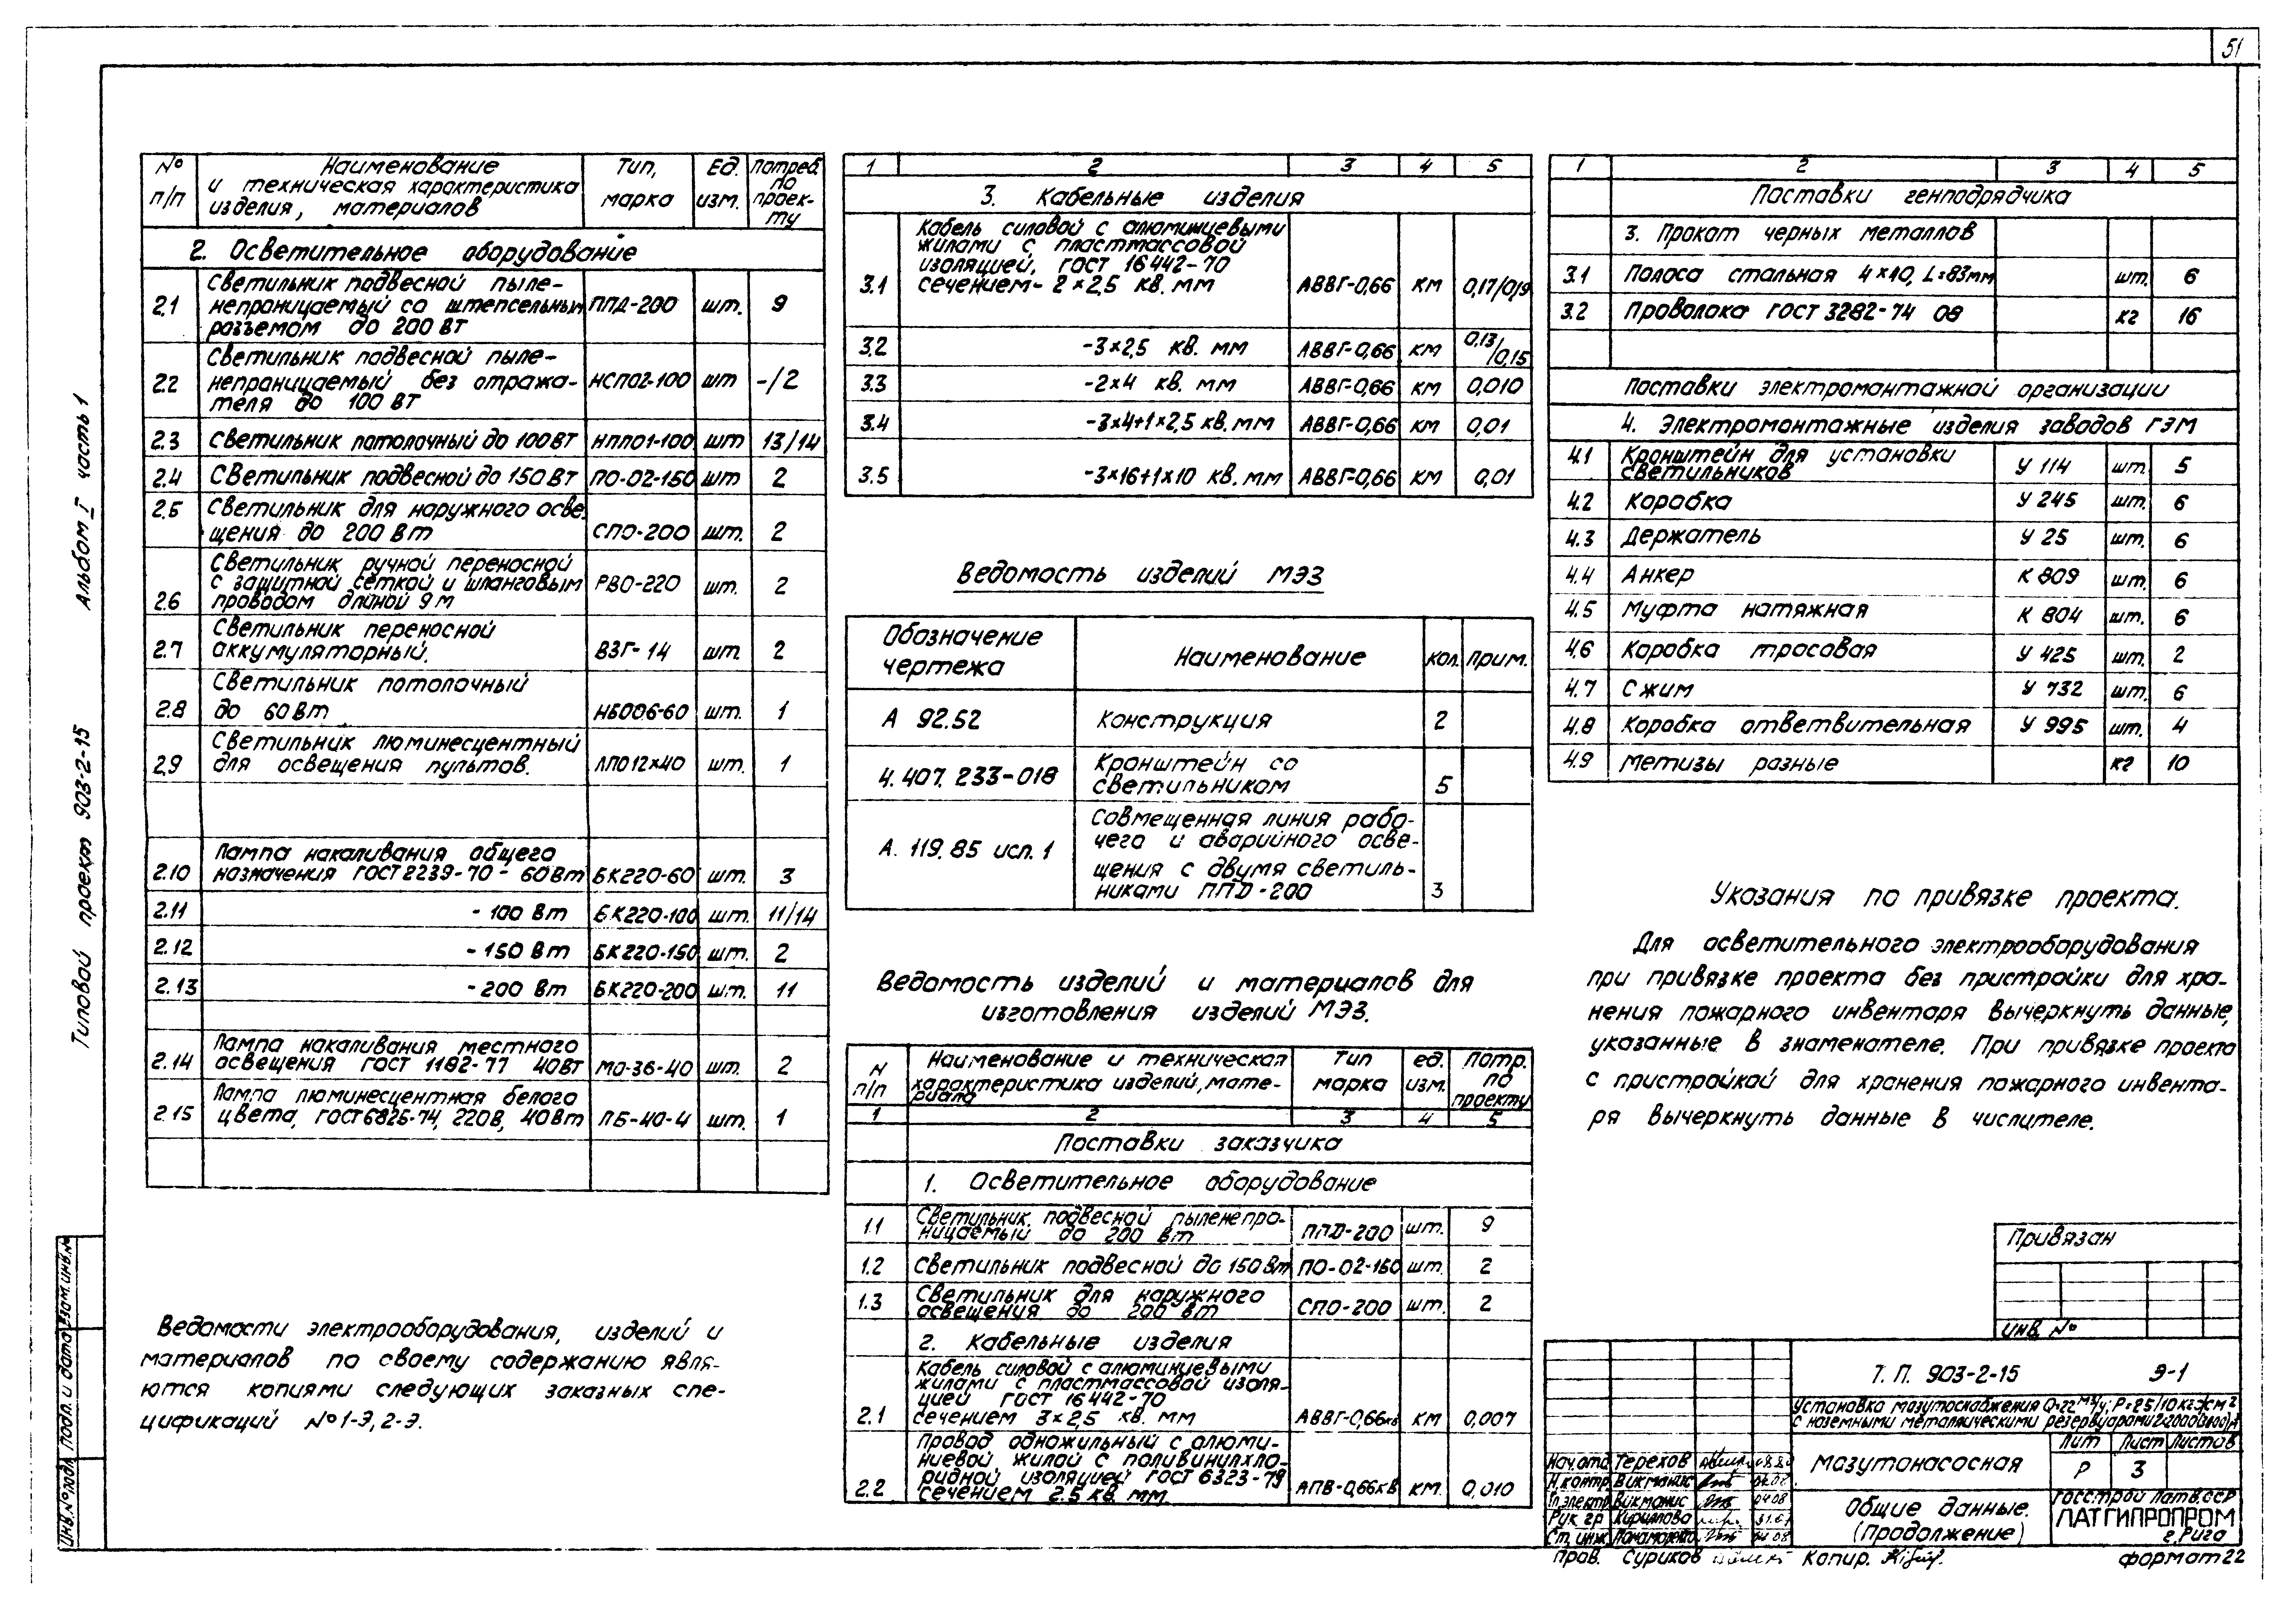 51
Альбом I часть 1
Типовой проект 903-2-15
№ п/п | Наименование и техническая характеристика изделия, материалов | Тип, марка | Ед. изм. | Потреб. по проек-ту
2. Осветительное оборудование
2.1 Светильник подвесной пыле-
непроницаемый со штепсельным ППД-200 шт. 9
разъемом до 200 Вт
2.2 Светильник подвесной пыле-
непроницаемый без отража- НСП02-100 шт -/2
теля до 100 Вт
2.3 Светильник потолочный до 100 Вт НПП01-100 шт 13/14
2.4 Светильник подвесной до 150 Вт ПО-02-150 шт 2
2.5 Светильник для наружного осве-
щения до 200 Вт СПО-200 шт. 2
Светильник ручной переносной
с защитной сеткой и шланговым РВО-220 шт. 2
2.6 проводом длиной 9м
Светильник переносной
2.7 аккумуляторный. ВЗГ-14 шт. 2
Светильник потолочный
2.8 до 60 Вт НБ006-60 шт. 1
Светильник люминесцентный
2.9 для освещения пультов. ЛПО12×40 шт. 1
Лампа накаливания общего
2.10 назначения ГОСТ 2239-70 - 60 Вт БК220-60 шт. 3
2.11 - 100 Вт БК220-100 шт. 11/14
2.12 - 150 Вт БК220-150 шт. 2
2.13 - 200 Вт БК220-200 шт. 11
Лампа накаливания местного
2.14 освещения ГОСТ 1182-77 40Вт МО-36-40 шт. 2
Лампа люминесцентная белого
2.15 цвета, ГОСТ 6825-74, 220В, 40 Вт ЛБ-40-4 шт. 1
Ведомости электрооборудования, изделий и
материалов по своему содержанию явля-
ются копиями следующих заказных спе-
цификаций №1-Э, 2-Э.
1 2 3 4 5
3. Кабельные изделия
Кабель силовой с алюминиевыми
жилами с пластмассовой
изоляцией, ГОСТ 16442-70
3.1 сечением - 2×2,5 кв. мм АВВГ-0,66 км 0,17/0,19
3.2 -3×2,5 кв. мм АВВГ-0,66 км 0,13/0,15
3.3 -2×4 кв. мм АВВГ-0,66 км 0,010
3.4 -3×4+1×2,5 кв. мм АВВГ-0,66 км 0,01
3.5 -3×16+1×10 кв. мм АВВГ-0,66 км 0,01
Ведомость изделий МЭЗ
Обозначение чертежа | Наименование | Кол. | Прим.
А 92.52 Конструкция 2
4.407.233-018 Кронштейн со
светильником 5
Совмещенная линия рабо-
А. 119.85 исп. 1 чего и аварийного осве-
щения с двумя светиль-
никами ППД-200 3
Ведомость изделий и материалов для
изготовления изделий МЭЗ.
N п/п | Наименование и техническая характеристика изделий, мате-риала | Тип марка | ед. изм. | Потр. по проекту
1 2 3 4 5
Поставки заказчика
1. Осветительное оборудование
1.1 Светильник подвесной пыленепро-
ницаемый до 200 Вт ППД-200 шт. 9
1.2 Светильник подвесной до 150 Вт ПО-02-150 шт. 2
1.3 Светильник для наружного
освещения до 200 Вт СПО-200 шт. 2
2. Кабельные изделия
Кабель силовой с алюминиевыми
жилами с пластмассовой изоля-
цией ГОСТ 16442-70
2.1 сечением 3×2,5 кв. мм АВВГ-0,66кв км 0,007
Провод одножильный с алюми-
ниевой жилой с поливинилхло-
ридной изоляцией ГОСТ 6323-79
2.2 сечением 2.5 кв. мм. АПВ-0,66кв км. 0,010
1 2 3 4 5
Поставки генподрядчика
3. Прокат черных металлов
3.1 Полоса стальная 4×40, L=83мм шт. 6
3.2 Проволока ГОСТ 3282-74 ∅8 кг 16
Поставки электромонтажной организации
4. Электромонтажные изделия заводов ГЭМ
4.1 Кронштейн для установки
светильников У 114 шт. 5
4.2 Коробка У 245 шт. 6
4.3 Держатель У 25 шт. 6
4.4 Анкер К 809 шт. 6
4.5 Муфта натяжная К 804 шт. 6
4.6 Коробка тросовая У 425 шт. 2
4.7 Сжим У 732 шт. 6
4.8 Коробка ответвительная У 995 шт. 4
4.9 Метизы разные кг 10
Указания по привязке проекта.
Для осветительного электрооборудования
при привязке проекта без пристройки для хра-
нения пожарного инвентаря вычеркнуть данные,
указанные в знаменателе. При привязке проекта
с пристройкой для хранения пожарного инвента-
ря вычеркнуть данные в числителе.
Привязан
Инв. №
Т. П. 903-2-15 Э-1
Установка мазутоснабжения Q=22 м³/ч; P=25/10 кгс/см²
с наземными металлическими резервуарами
Мазутонасосная
Лит Лист Листов
Р 3
Общие данные.
(Продолжение)
Госстрой Латв.ССР
ЛАТГИПРОПРОМ
г. Рига
Нач.отд Терехов
Н.контр. Викманис
Гл.электр Викманис 04.08
Рук гр Кириллова
Ст. инж. 04.08
Пров. Суриков
Копир.
формат 22
Инв.№подл. Подп. и дата Взам.инв.№